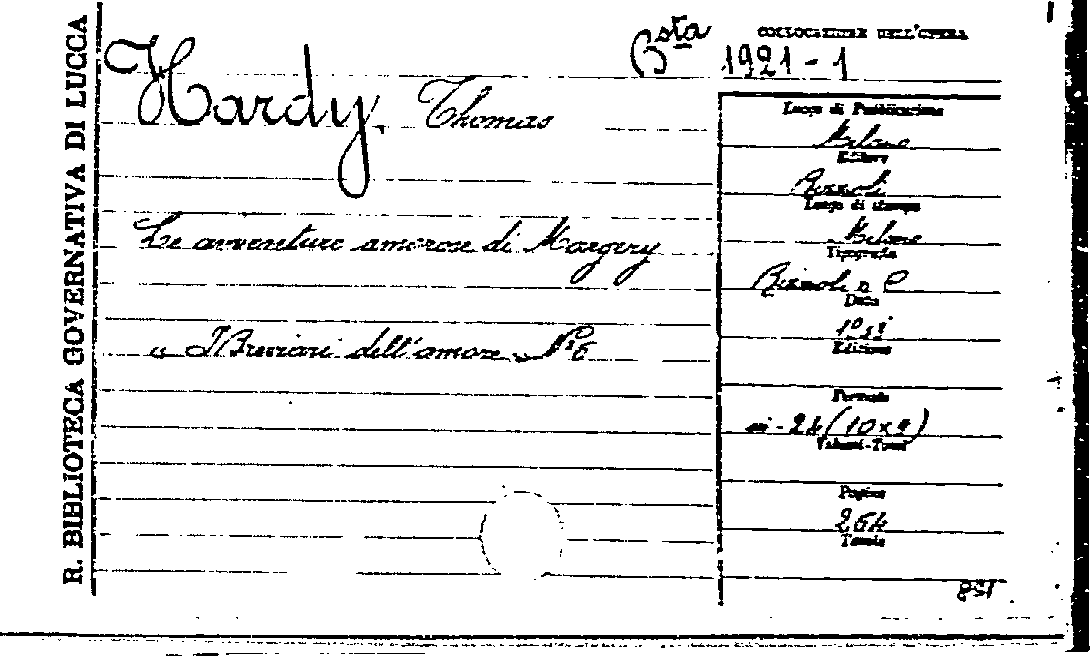 R. BIBLIOTECA GOVERNATIVA DI LUCCA
COLLOCAZIONE DELL'OPERA
Bsta 1921-1
Hardy, Thomas
Le avventure amorose di Margery
« I Breviari dell'amore » N° 6
Luogo di Pubblicazione
Milano
Editore
Rizzoli
Luogo di stampa
Milano
Tipografia
Rizzoli e C
Data
Edizione
Formato
in-24 (10x9)
Volumi-Tomi
Pagine
264
Tavole